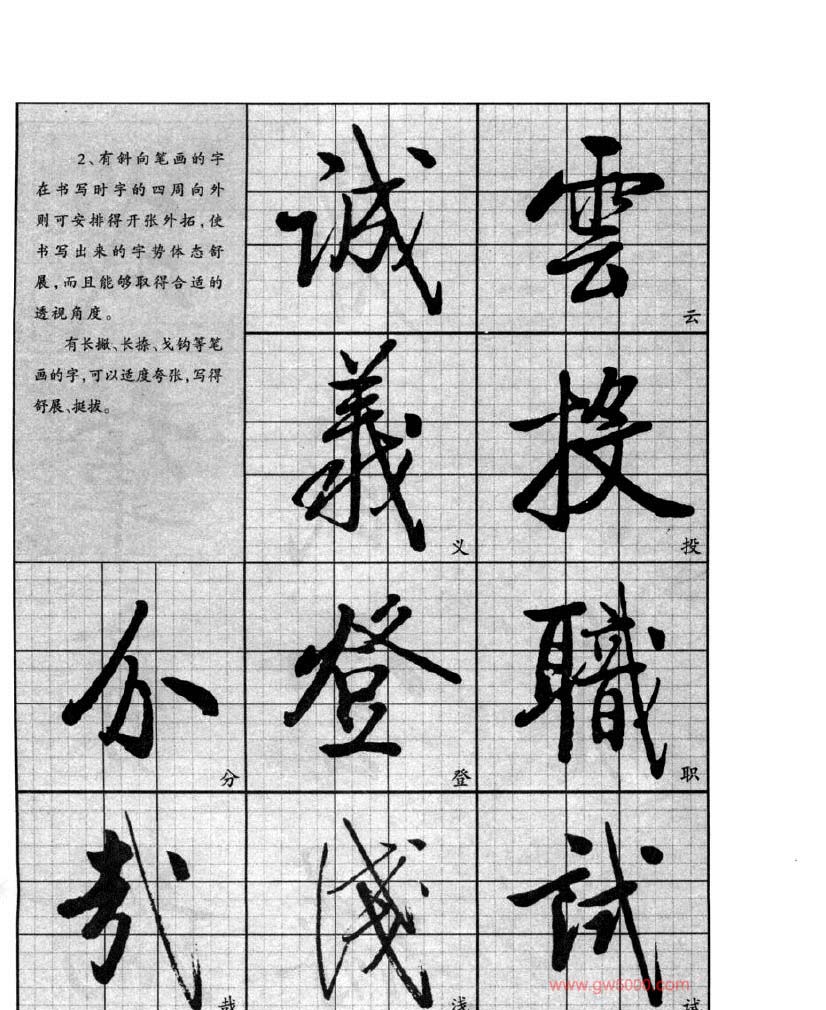 2、有斜向笔画的字
在书写时字的四周向外
则可安排得开张外拓,使
书写出来的字势体态舒
展,而且能够取得合适的
透视角度。
有长撇、长捺、戈钩等笔
画的字,可以适度夸张,写得
舒展、挺拔。
誠
雲
云
義
义
投
投
分
分
登
登
職
职
哉
哉
淺
浅
試
试
www.gw5000.com